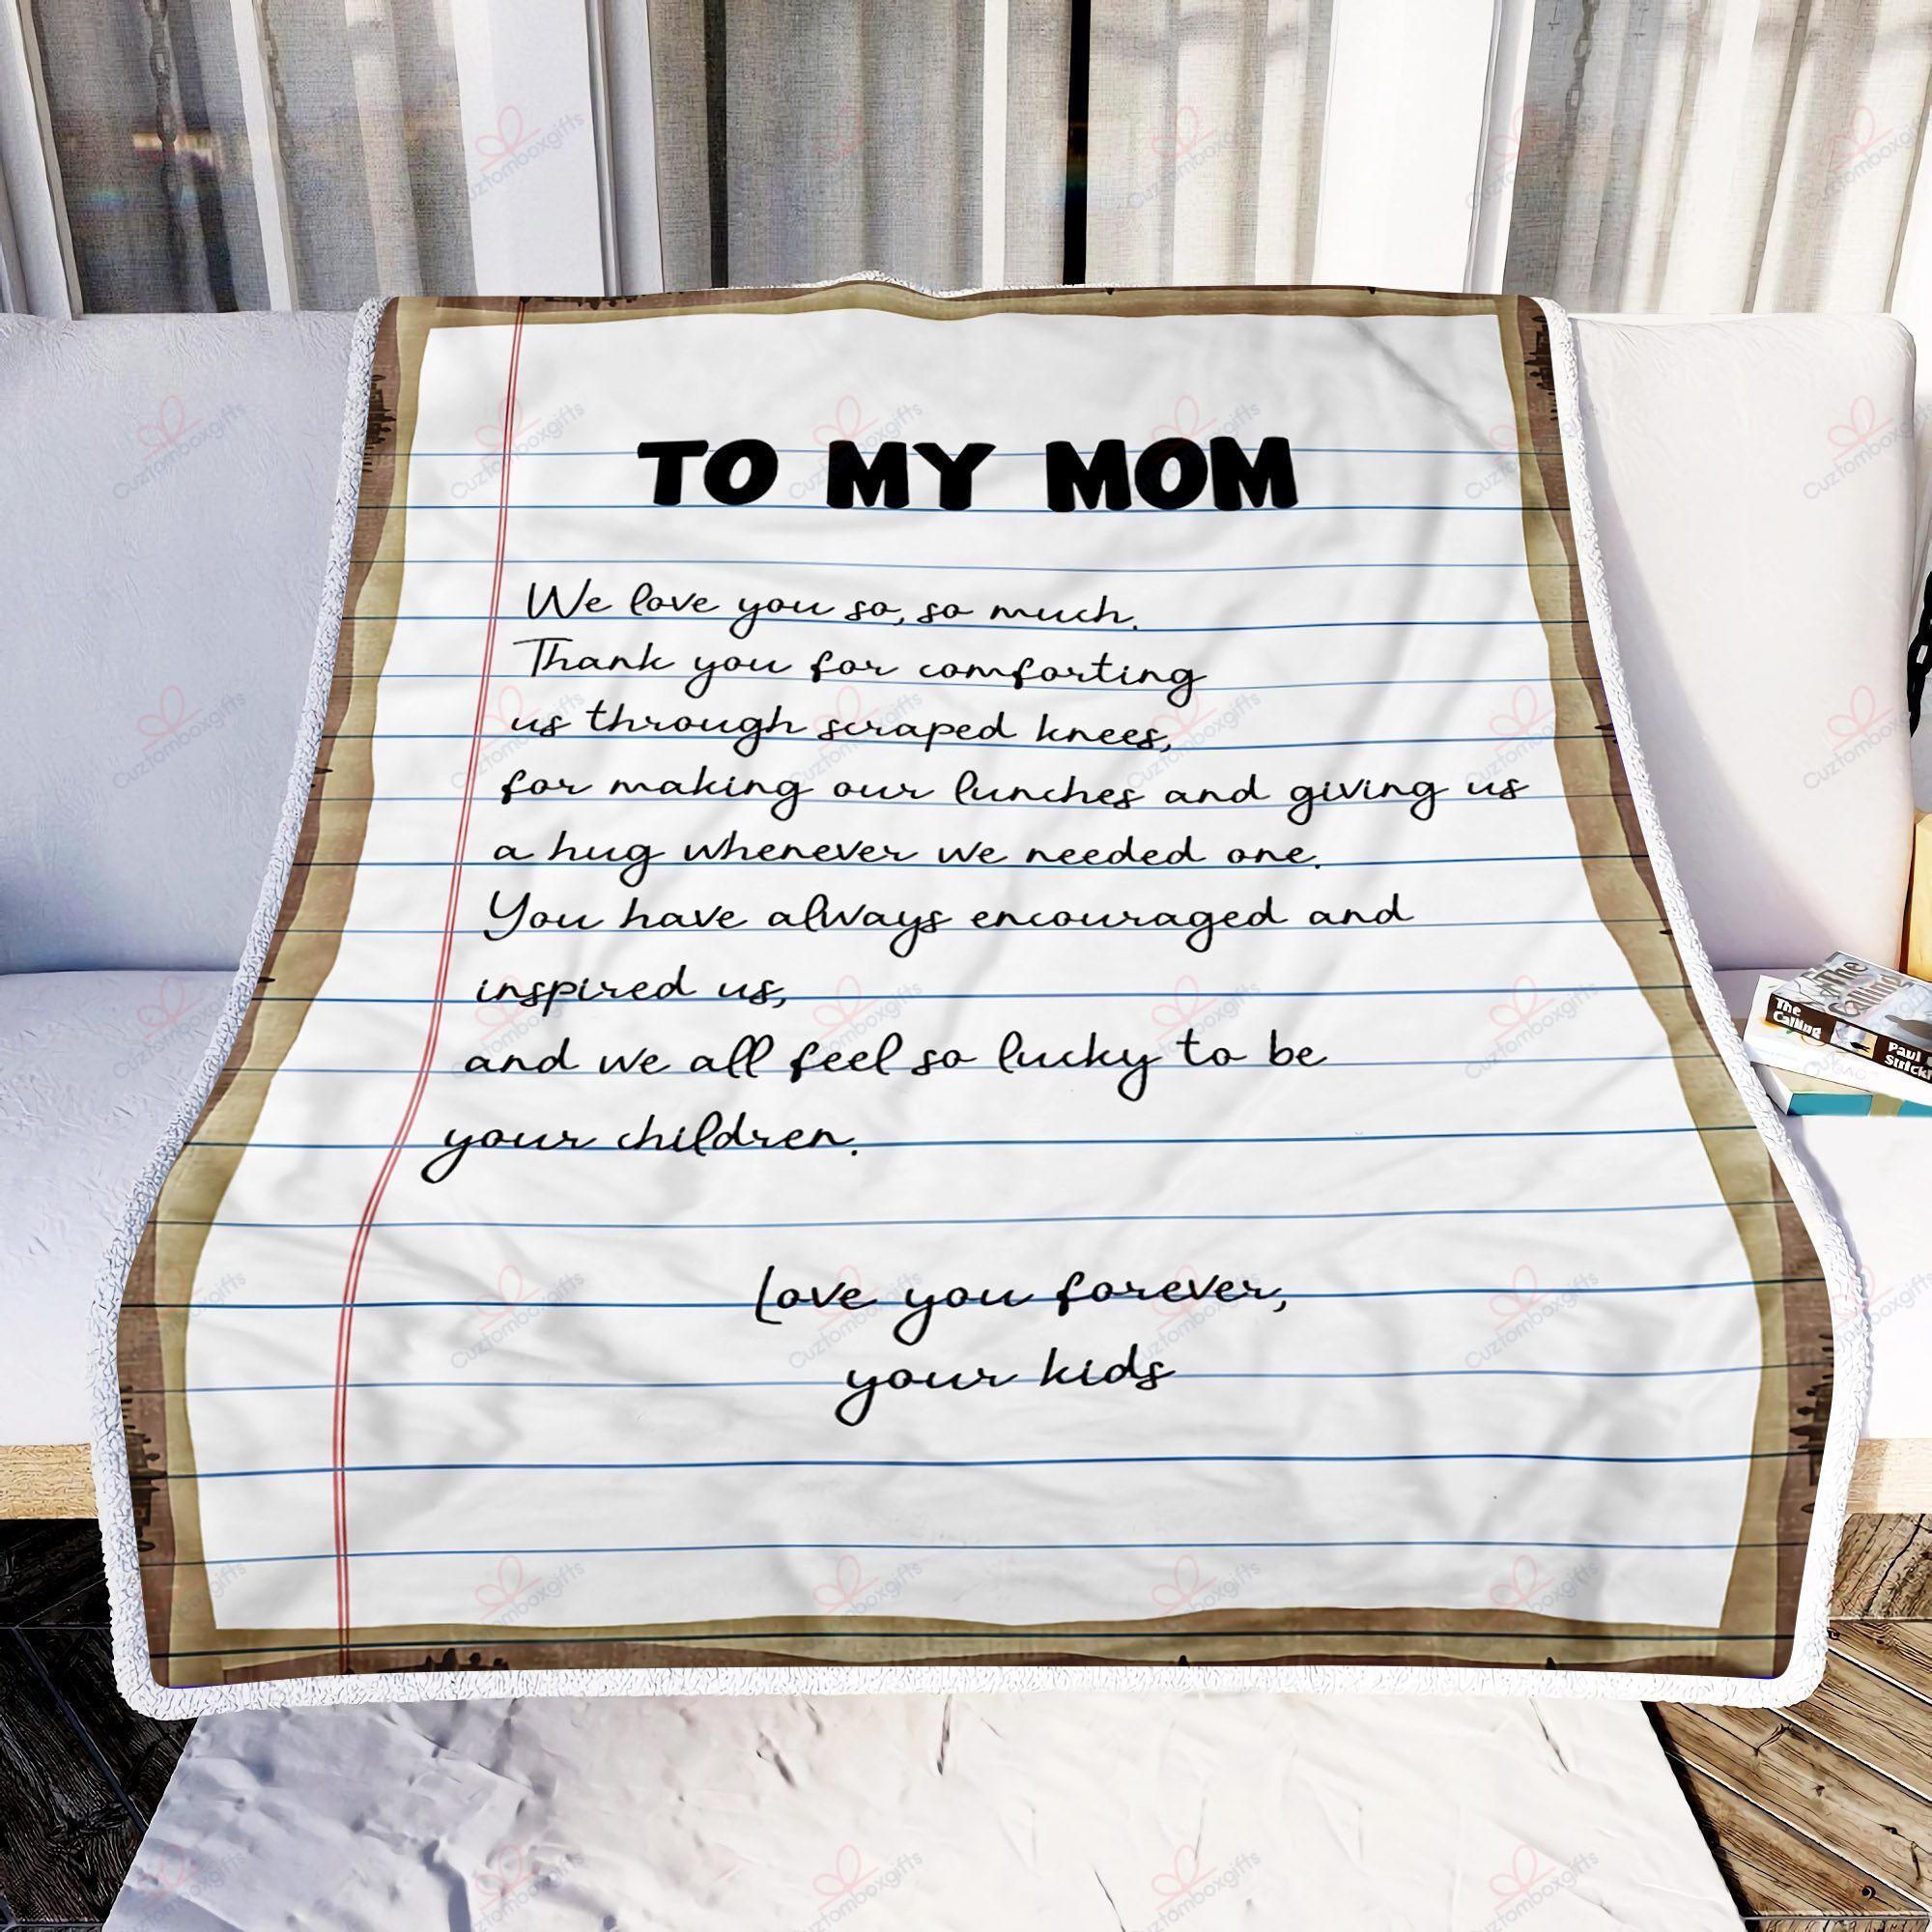 TO MY MOM
We love you so, so much.
Thank you for comforting
us through scraped knees,
for making our lunches and giving us
a hug whenever we needed one.
You have always encouraged and
inspired us,
and we all feel so lucky to be
your children.
Love you forever,
your kids
The
Calling
The
Calling
Paul
Cuztomboxgifts